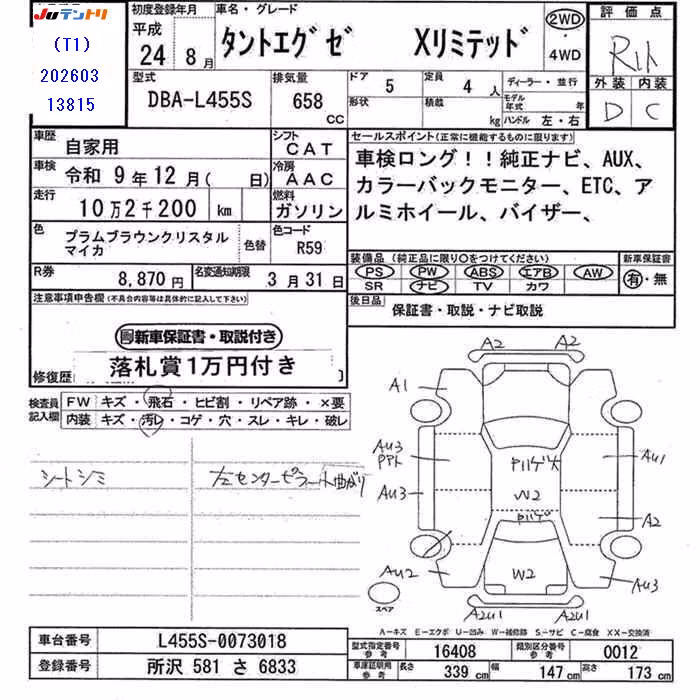 JUテントリ
(T1)
202603
13815
初度登録年月
平成
24年 8月
車名・グレード
タントエグゼ Xリミテッド
2WD
・
4WD
評価点
R1ト
外装 内装
D C
型式
DBA-L455S
排気量
658 CC
ドア 5
形状
定員 4 人
積載 kg
ディーラー・並行
モデル年式 年
ハンドル 左・右
車歴 自家用
シフト CAT
車検 令和 9年12月( 日)
冷房 AAC
走行 10万2千200 km
燃料 ガソリン
色 プラムブラウンクリスタルマイカ
色替
色コード R59
R券 8,870円
名変通知期限 3月31日
セールスポイント(正常に機能するものに限ります)
車検ロング!!純正ナビ、AUX、
カラーバックモニター、ETC、ア
ルミホイール、バイザー、
装備品(純正品に限り○をつけてください)
PS PW ABS エアB AW
SR ナビ TV カワ
新車保証書
有・無
後日品 保証書・取説・ナビ取説
注意事項申告欄(不具合内容等は具体的に記入して下さい)
新車保証書・取説付き
落札賞1万円付き
修復歴 )
検査員記入欄
FW キズ・飛石・ヒビ割・リペア跡・×要
内装 キズ・汚レ・コゲ・穴・スレ・キレ・破レ
シートシミ
左センターピラー小曲がり
A2 A2
A1
AU3
PPト
AU3
AU2
P1ハゲ大
W2
P1ハゲ
W2
AU1
A2
AU3
A2U1 A2U1
スペア
A-キズ E-エクボ U-凹み W-補修跡 S-サビ C-腐食 XX-交換済
車台番号 L455S-0073018
登録番号 所沢 581 さ 6833
型式指定番号 参考 16408
類別区分番号 参考 0012
車庫証明用 参考 長さ 339 cm 幅 147 cm 高さ 173 cm